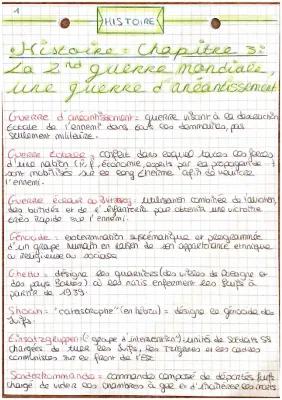 1
HISTOIRE
Histoire = Chapitre 3:
La 2nd guerre mondiale,
une guerre d'anéantissement
Guerre d'anéantissement = guerre visant à la destruction
totale de l'ennemi dans tous ces domaines, pas
seulement militaire.
Guerre totale = conflit dans lequel toutes les forces
d'une nation économie, esprits par la propagande
sont mobilisés sur le long terme afin de vaincre
l'ennemi.
Guerre éclair ou = utilisation combinée de l'aviation,
des blindés et de l'infanterie pour obtenir une victoire
très rapide sur l'ennemi.
Génocide = extermination systématique et programmée
d'un groupe humain en raison de son appartenance ethnique
ou religieuse ou sociale
Ghetto = désigne les quartiers (des villes de Pologne et
des pays Baltes) où les nazis enferment les Juifs à
partir de 1939.
Shoah = "catastrophe" (en hébreu) = désigne le génocide des
Juifs.
Einsatzgruppen ("groupe d'intervention") = unités de soldats SS
chargées de tuer les Juifs, les Tziganes et les cadres
communistes sur le front de l'Est.
Sonderkommando = commando composé de déportés Juifs
chargé de vider les chambres à gaz et d' les morts